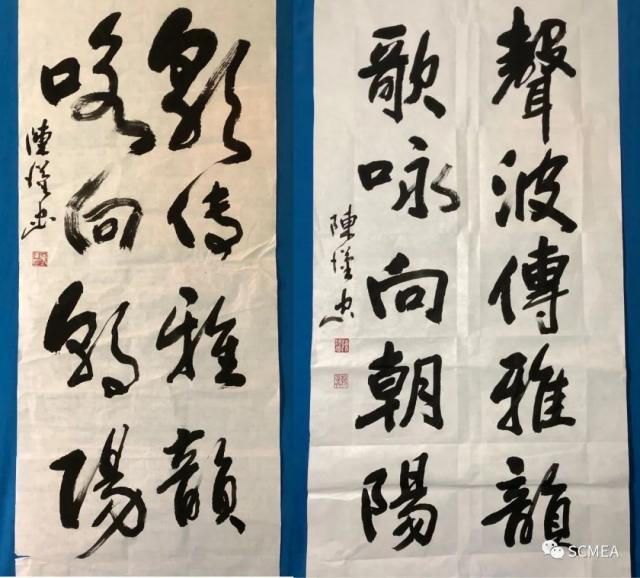 歌傳雅韻
咏向朝陽
陳
聲波傳雅韻
歌咏向朝陽
陳
SCMEA